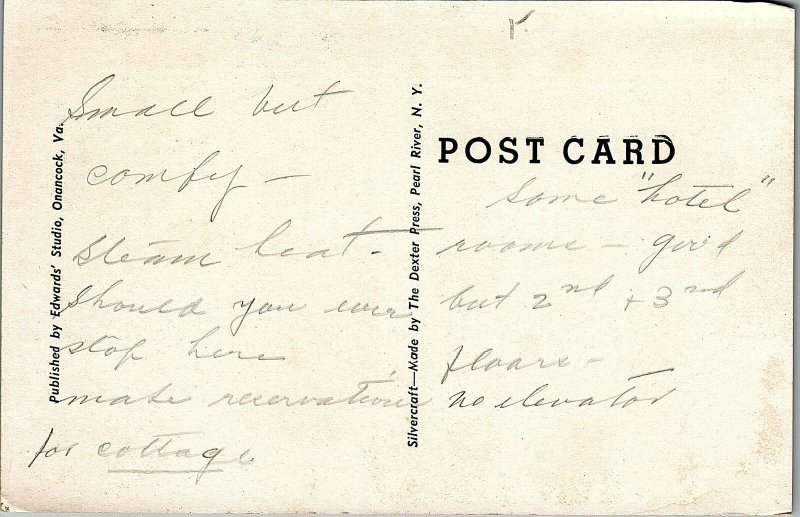 Small but
comfy —
steam heat -
Should you ever
stop here
make reservations
for cottage
Published by Edwards' Studio, Onancock, Va.
Silvercraft—Made by The Dexter Press, Pearl River, N. Y.
POST CARD
Some "hotel"
rooms — good
but 2nd + 3rd
floors -
no elevator